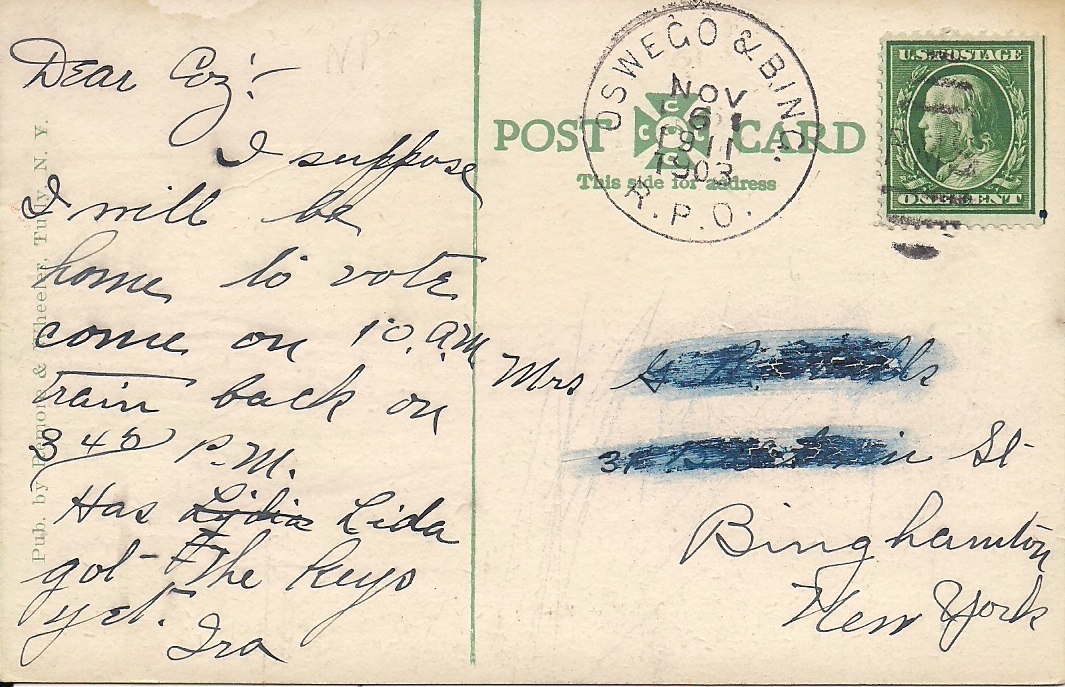 Dear Coz:-
I suppose
I will be
home to vote
come on 10. a.m
train back on
3 45 P.M.
Has Lydia Lida
got the keys
yet.
Ira
Pub. by & Wheeler, Tully, N. Y.
NP
POST CARD
This side for address
OSWEGO & BING.
NOV
6 1
1911
1903
R.P.O.
U.S. POSTAGE
ONE CENT
Mrs
31 St
Binghamton
New York